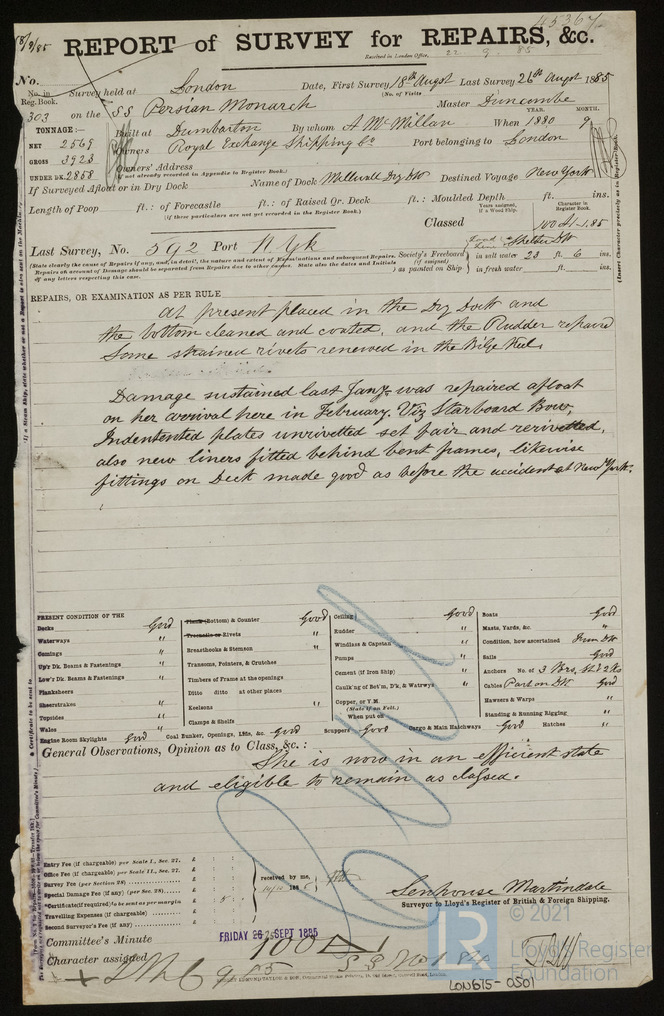 45367
REPORT of SURVEY for REPAIRS, &c.
Received in London Office, 22 9 85
No.
No. in Reg. Book. Survey held at London Date, First Survey 18th Augst Last Survey 26th Augst 1885
(No. of Visits
303 on the SS Persian Monarch Master Duncombe
YEAR. MONTH.
TONNAGE:— Built at Dumbarton By whom A McMillan When 1880 9
NET 2569 Owners Royal Exchange Shipping Co Port belonging to London
GROSS 3923 Owners' Address
(If not already recorded in Appendix to Register Book.)
UNDER DK. 2858
If Surveyed Afloat or in Dry Dock Name of Dock Millwall Dry Dk Destined Voyage New York
Length of Poop ft.: of Forecastle ft.: of Raised Qr. Deck ft.: Moulded Depth ft. ins.
(If these particulars are not yet recorded in the Register Book.)
Years assigned, if a Wood Ship. Character in Register Book.
Classed 100 A1-1.85
Last Survey, No. 592 Port N. Yk
(State clearly the cause of Repairs if any, and, in detail, the nature and extent of Examinations and subsequent Repairs.
Repairs on account of Damage should be separated from Repairs due to other causes. State also the dates and Initials
of any letters respecting this case.
Society's Freeboard (if assigned) as painted on Ship
Shelter Dk
in salt water 23 ft. 6 ins.
in fresh water ft. ins.
REPAIRS, OR EXAMINATION AS PER RULE
At present placed in the Dry Dock and
the bottom cleaned and coated, and the Rudder repaired
Some strained rivets renewed in the Bilge Keel.
Damage sustained last Jany. was repaired afloat
on her arrival here in February, Viz Starboard Bow,
Indentented plates unrivetted set fair and rerivetted,
also new liners fitted behind bent frames, likewise
fittings on Deck made good as before the accident at New York.
PRESENT CONDITION OF THE
Decks Good
Waterways "
Comings "
Up'r Dk. Beams & Fastenings "
Low'r Dk. Beams & Fastenings "
Planksheers
Sheerstrakes "
Topsides "
Wales "
Engine Room Skylights Good Coal Bunker, Openings, Lids, &c. Good Scuppers Good Cargo & Main Hatchways Good Hatches "
Plank (Bottom) & Counter Good
Treenails or Rivets "
Breasthooks & Stemson "
Transoms, Pointers, & Crutches
Timbers of Frame at the openings
Ditto ditto at other places
Keelsons "
Clamps & Shelfs
Ceiling Good
Rudder "
Windlass & Capstan "
Pumps "
Cement (if Iron Ship) "
Caulk'ng of Bot'm, D'k, & Watrwys "
Copper, or Y.M
(State if on Felt.)
When put on
Boats Good
Masts, Yards, &c. "
Condition, how ascertained From Dk
Sails Good
Anchors No. of 3 Brs, St & 2 Ks
Cables Part on Dk Good
Hawsers & Warps "
Standing & Running Rigging "
General Observations, Opinion as to Class, &c.:
She is now in an efficient state
and eligible to remain as classed.
Entry Fee (if chargeable) per Scale I., Sec. 27. £
Office Fee (if chargeable) per Scale II., Sec. 27. £
Survey Fee (per Section 28) £
Special Damage Fee (if any) (per Sec. 28) £
*Certificate (if required) to be sent as per margin £ 5
Travelling Expenses (if chargeable) £
Second Surveyor's Fee (if any) £
received by me,
Senhouse Martindale
Surveyor to Lloyd's Register of British & Foreign Shipping.
Committee's Minute FRIDAY 25 SEPT 1885
Character assigned 100 A 1
+ LMC 9.85 SS No 1 84
© 2021
LR Lloyd's Register
Foundation
LON615-0501